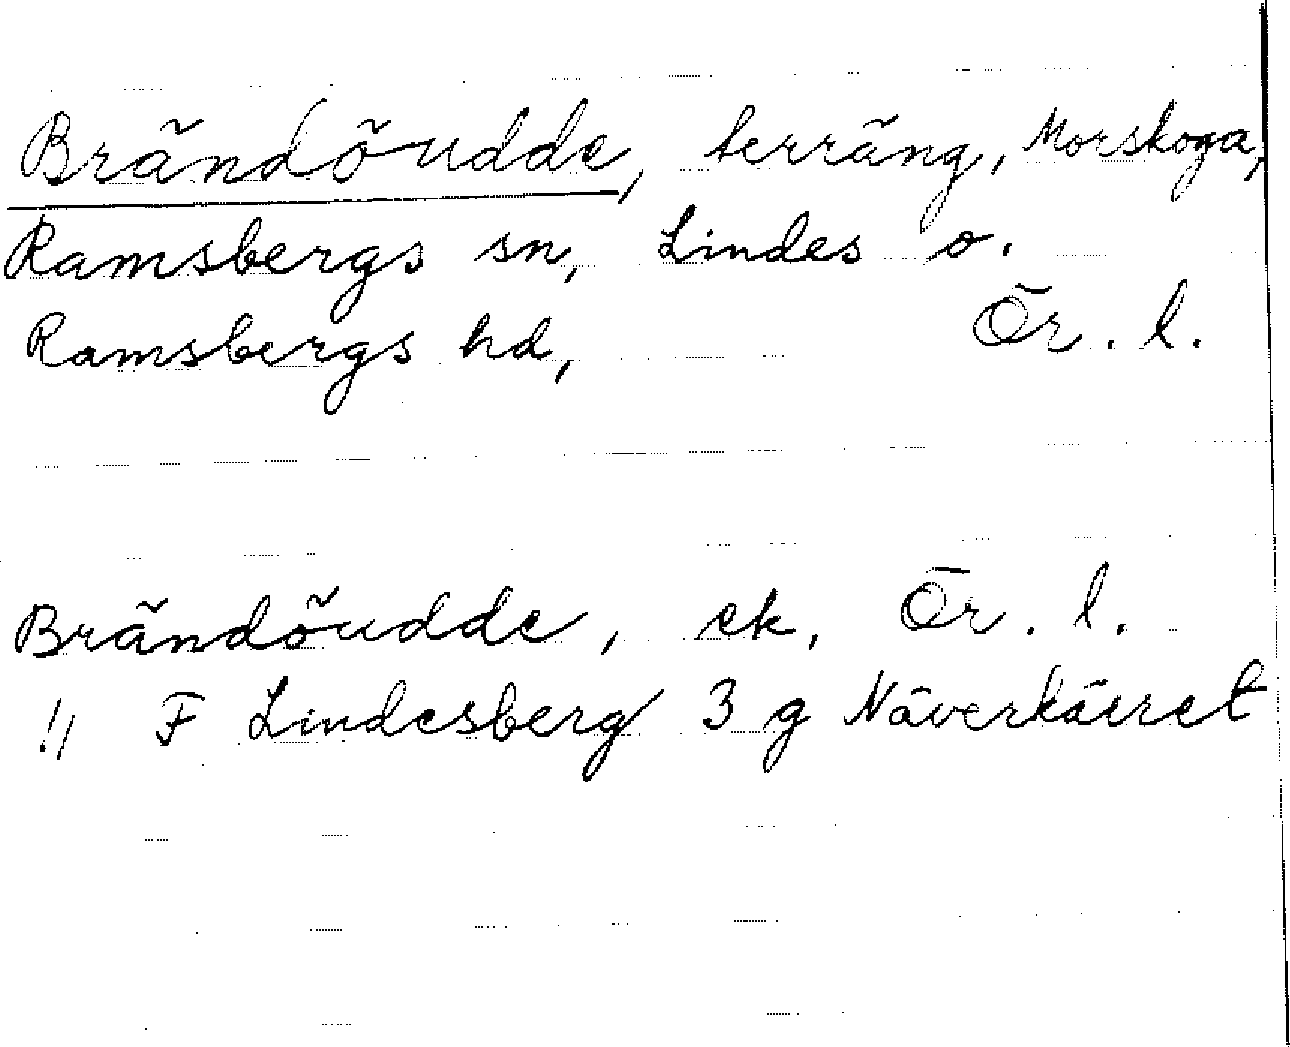 Brändöudde, terräng, Morskoga,
Ramsbergs sn, Lindes o.
Ramsbergs hd, Ör. l.
Brändöudde, ek, Ör. l.
" F Lindesberg 3 g Näverkärret